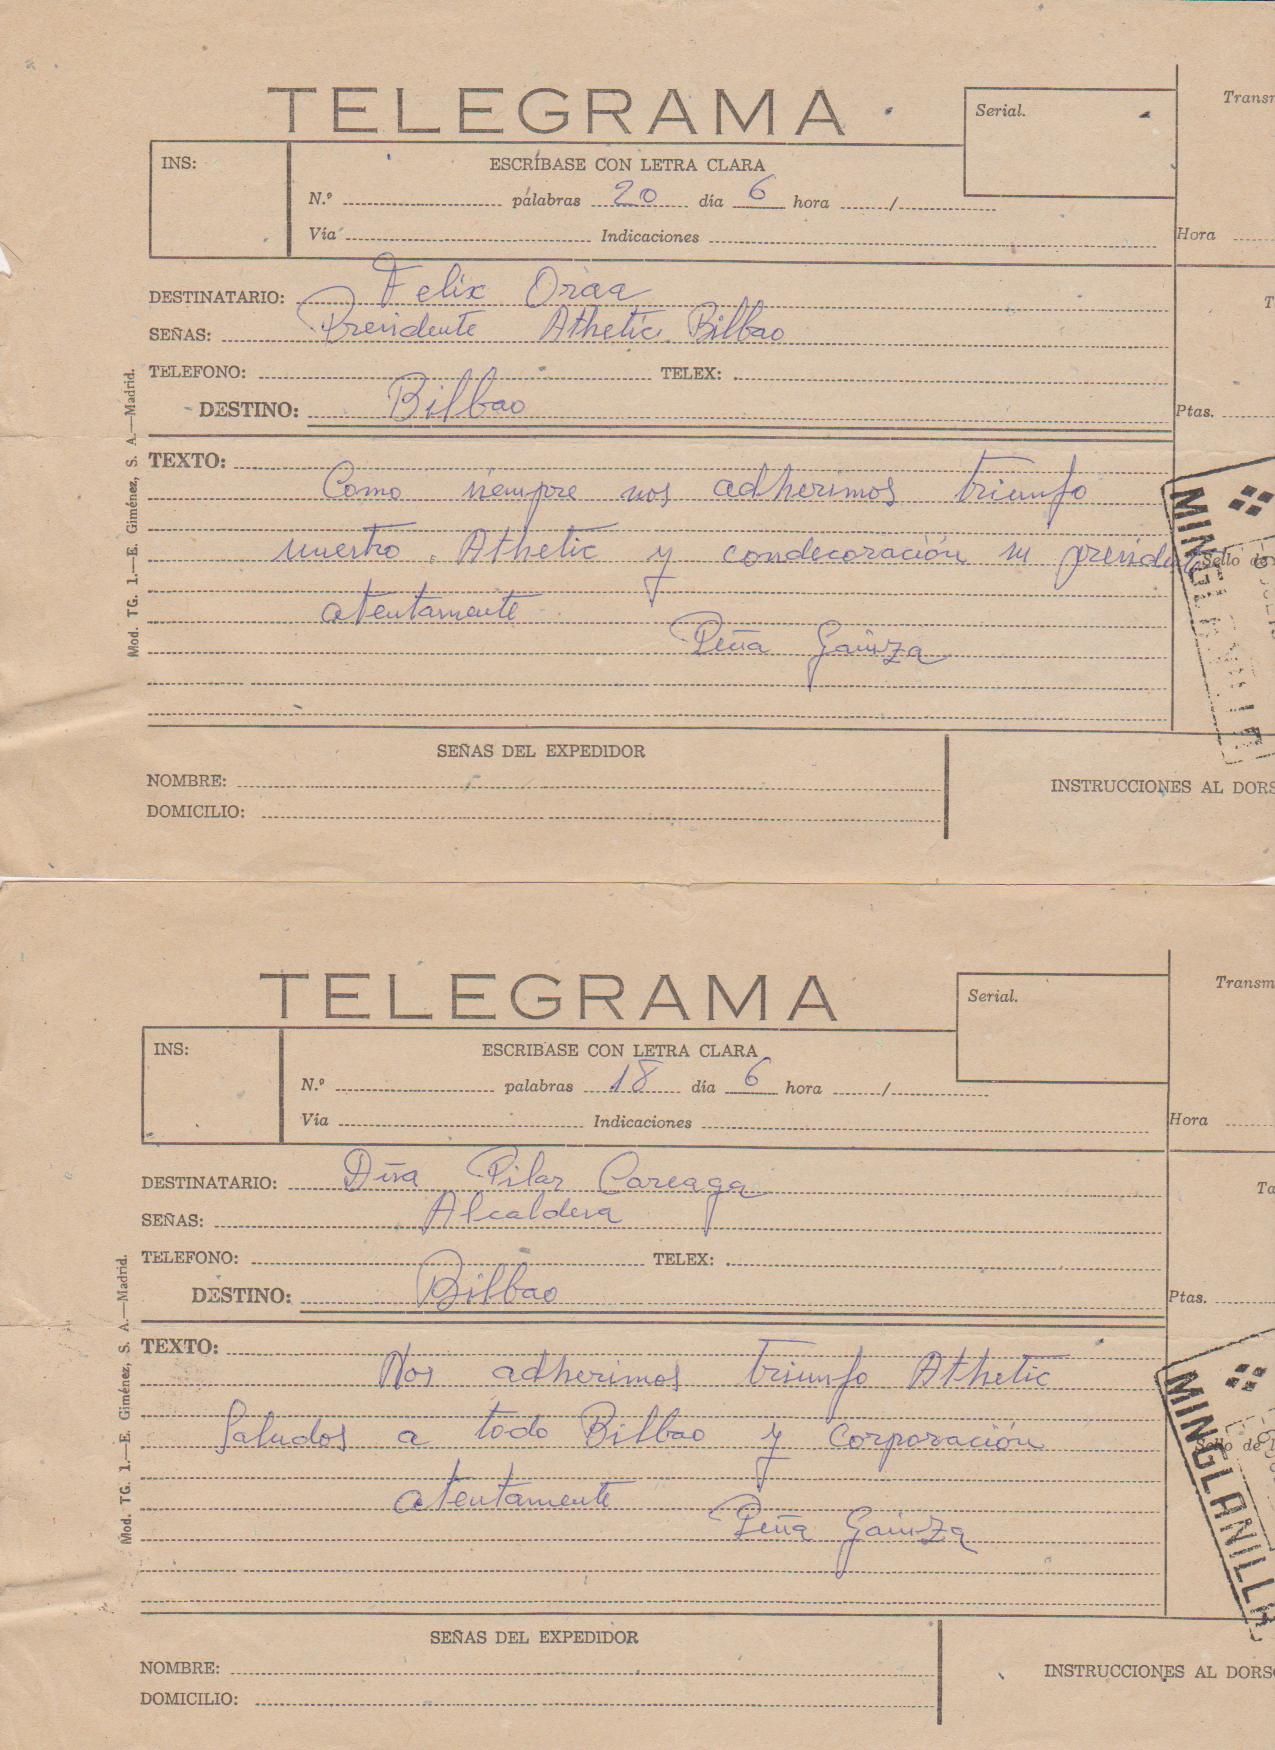 TELEGRAMA
Serial.
Transm
INS:
ESCRÍBASE CON LETRA CLARA
N.º palabras 20 día 6 hora /
Vía Indicaciones
Hora
DESTINATARIO: Felix Oraa
T
SEÑAS: Presidente Athetic Bilbao
TELEFONO: TELEX:
DESTINO: Bilbao
Ptas.
TEXTO:
Como siempre nos adherimos triunfo
nuestro Athetic y condecoración su
Sello de
atentamente
Peña Gainza
MINGLANILLA
SEÑAS DEL EXPEDIDOR
NOMBRE:
DOMICILIO:
INSTRUCCIONES AL DORS
Mod. TG. 1.—E. Giménez, S. A.—Madrid.
TELEGRAMA
Serial.
Transm
INS:
ESCRIBASE CON LETRA CLARA
N.º palabras 18 día 6 hora /
Vía Indicaciones
Hora
DESTINATARIO: Dña Pilar Careaga
Ta
SEÑAS: Alcaldesa
TELEFONO: TELEX:
DESTINO: Bilbao
Ptas.
TEXTO:
Nos adherimos triunfo Athetic
Saludos a todo Bilbao y corporación
Sello de
atentamente
Peña Gainza
MINGLANILLA
SEÑAS DEL EXPEDIDOR
NOMBRE:
DOMICILIO:
INSTRUCCIONES AL DORS
Mod. TG. 1.—E. Giménez, S. A.—Madrid.